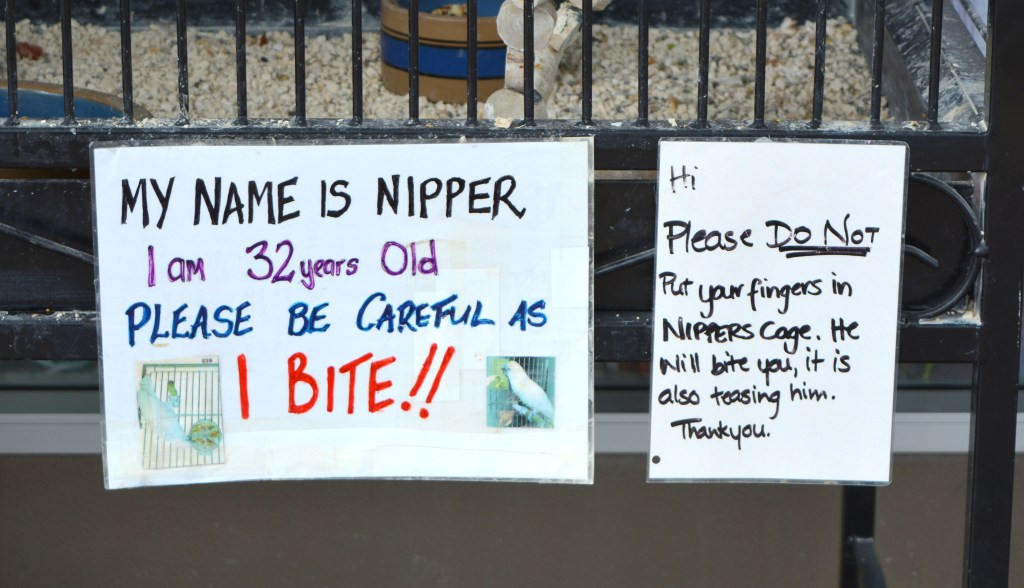 MY NAME IS NIPPER
I am 32 years Old
PLEASE BE CAREFUL AS
I BITE!!
Hi
Please DO NOT
Put your fingers in
NIPPERS Cage. He
Will bite you, it is
also teasing him.
Thankyou.